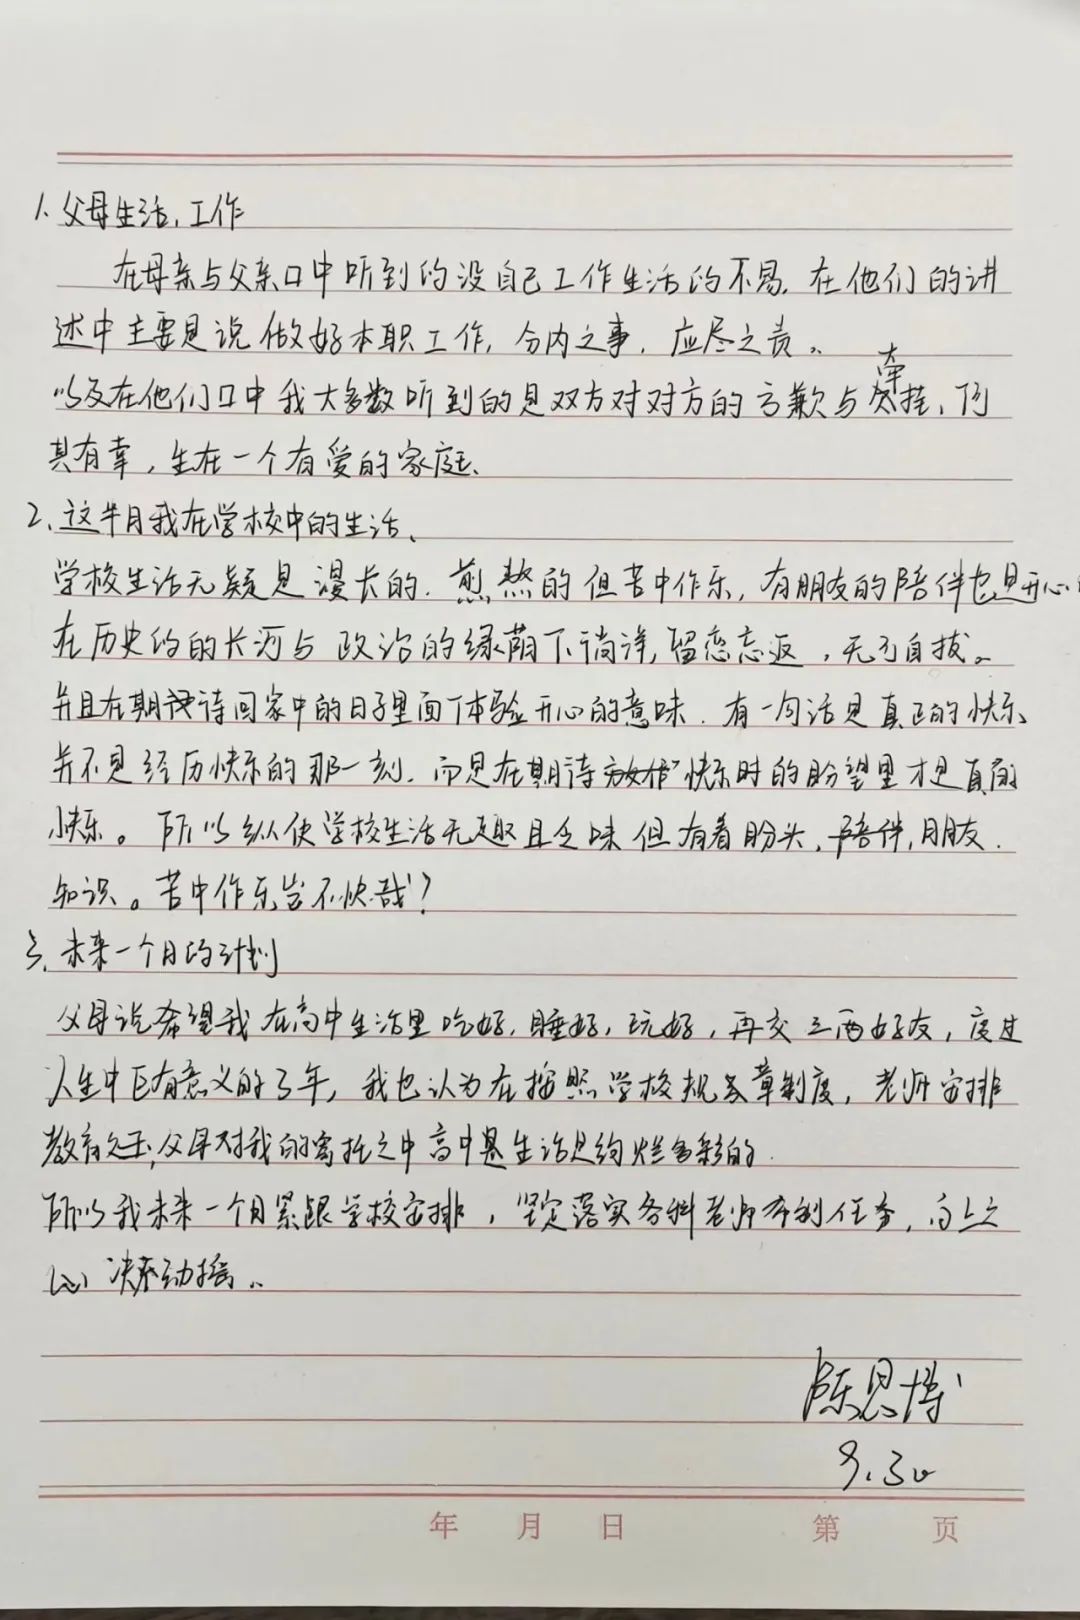 1.父母生活、工作
在母亲与父亲口中听到的没自己工作生活的不易,在他们的讲
述中主要是说做好本职工作,分内之事,应尽之责。
以及在他们口中我大多数听到的是双方对对方的亏歉与牵挂,何
其有幸,生在一个有爱的家庭、
2、这半月我在学校中的生活、
学校生活无疑是漫长的.煎熬的但苦中作乐,有朋友的陪伴也是开心
在历史的长河与政治的绿荫下徜徉,留恋忘返,无可自拔。
并且在期待回家中的日子里面体验开心的意味.有一句话是真正的快乐
并不是经历快乐的那一刻.而是在期待快乐时的盼望里才是真的
快乐。所以纵使学校生活无趣且乏味但有着盼头、陪伴,朋友.
知识。苦中作乐岂不快哉?
3、未来一个月的计划
父母说希望我在高中生活里吃好,睡好,玩好,再交三两好友,度过
人生中有意义的3年,我也认为在按照学校规章制度,老师安排
教育父母对我的寄托之中高中生活是绚烂多彩的.
所以我未来一个月紧跟学校安排,坚定落实各科老师布制任务,向上之
心决不动摇。
陈思博
9.30
年 月 日 第 页